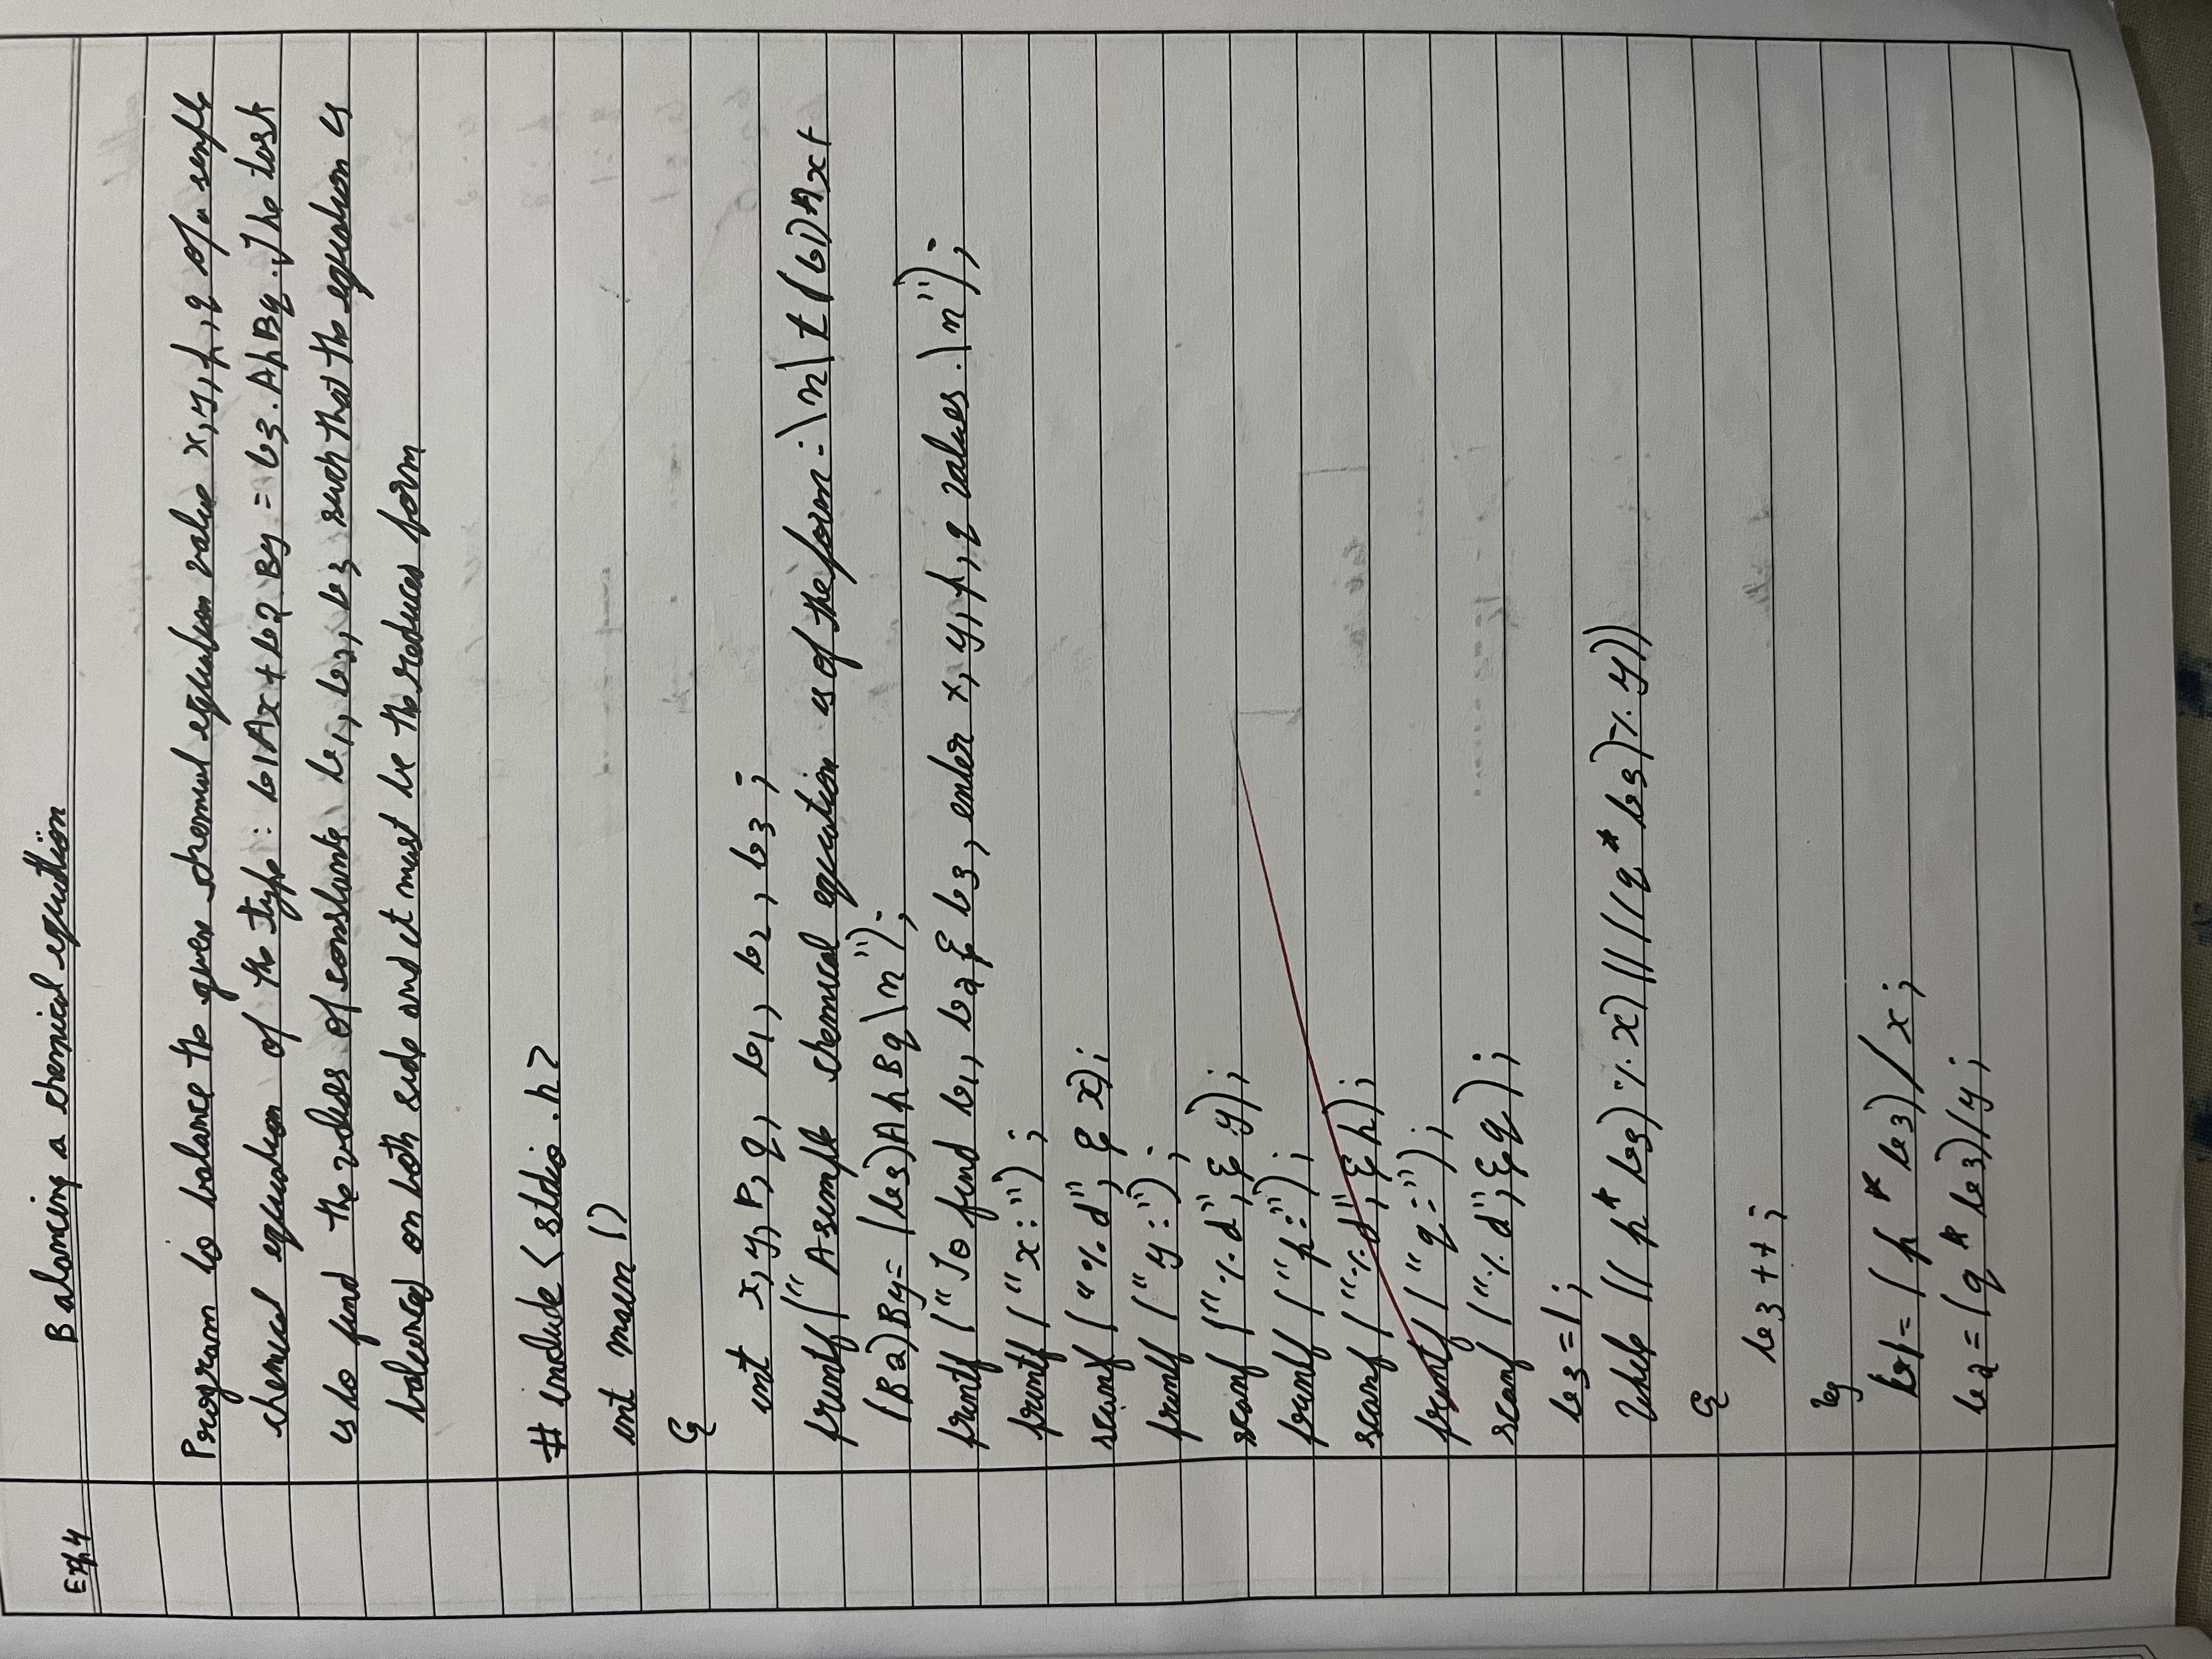 Exp 4
Balancing a chemical equation
Program to balance the given chemical equation value x, y, p, q of a simple
chemical equation of the type : b1Ax + b2 By = b3. ApBq. The task
is to find the values of constants b1, b2, b3 such that the equation is
balanced on both side and it must be the reduced form
# include < stdio .h >
int main ()
{
int x, y, P, q, b1, b2, b3 ;
printf ("A simple chemical equation is of the form : \n\t (b1) Ax +
(B2) By = (b3) Ap Bq \n");
printf ("To find b1, b2 & b3, enter x, y, p, q values . \n");
printf ("x:") ;
scanf ("%d", & x);
printf ("y:") ;
scanf ("%d", & y);
printf ("p:") ;
scanf ("%d", & p);
printf ("q:") ;
scanf ("%d", & q );
b3 = 1 ;
While (( p * b3) % x) || ((q * b3) % y))
{
b3 ++ ;
}
b1 = ( p * b3) / x ;
b2 = (q * b3) / y ;